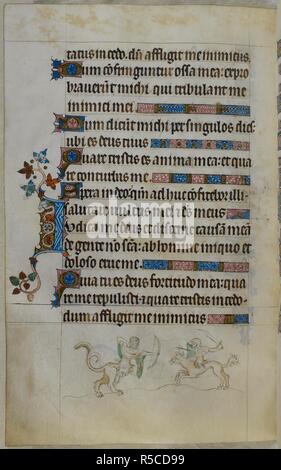 tatus incedo. dũ affligit me inimicus.
Dum cõfringuntur ossa mea: expro
braverunt michi qui tribulant me
inimici mei.
Dum dicũt michi per singulos dies:
ubi es deus tuus
Quare tristis es anima mea: et qua
re conturbas me.
Spera in deo qm̃ adhuc cõfitebor illi:
salutare vultus mei et deus meus
Iudica me deus et discerne causã meã
de gente nõ scã: ab homine iniquo et
doloso erue me.
Quia tu es deus fortitudo mea: qua
re me repulisti et quare tristis incedo
dum affligit me inimicus
alamy
Image ID: R5CD99
www.alamy.com